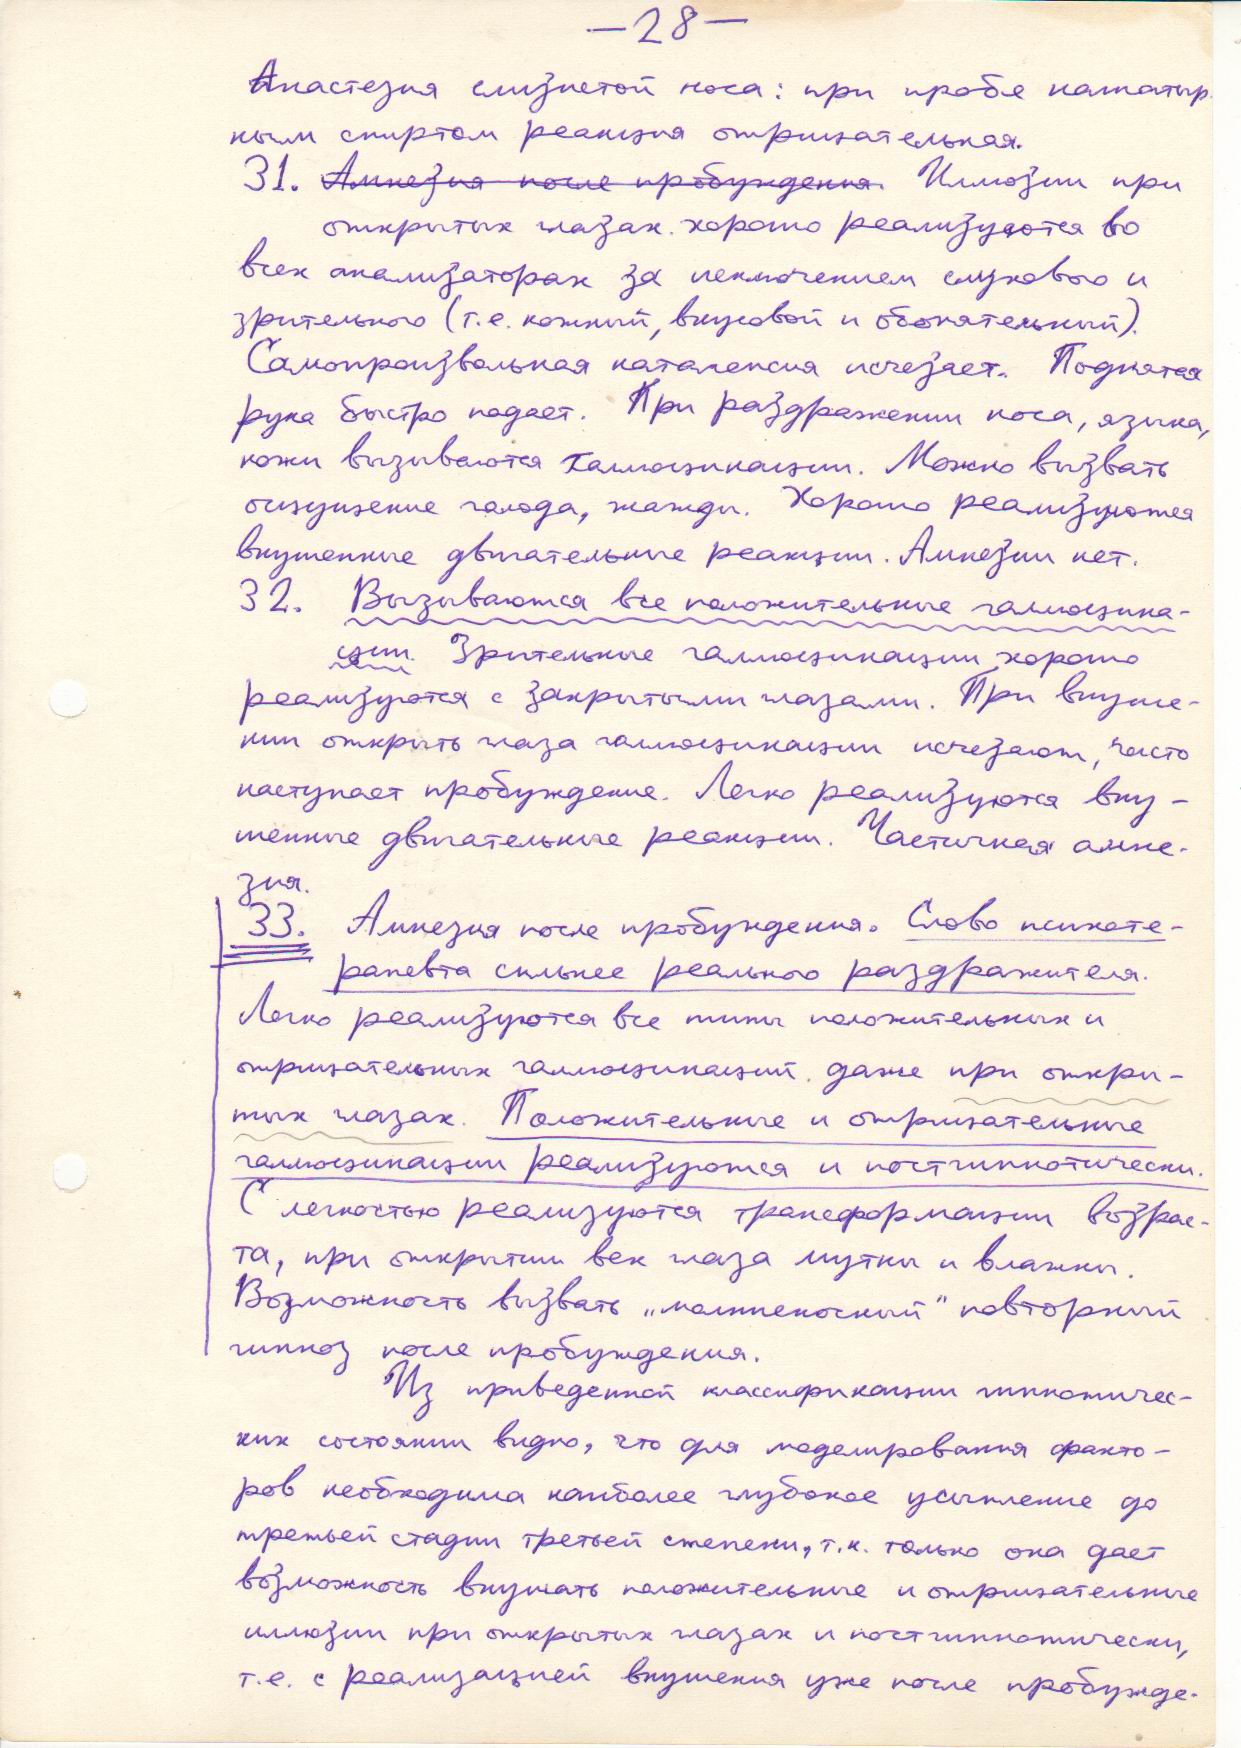 —28—
Анастезия слизистой носа: при пробе нашатыр-
ным спиртом реакция отрицательная.
31. Амнезия после пробуждения. Иллюзии при
открытых глазах хорошо реализуются во
всех анализаторах за исключением слухового и
зрительного (т.е. кожный, вкусовой и обонятельный).
Самопроизвольная каталепсия исчезает. Поднятая
рука быстро падает. При раздражении носа, языка,
кожи вызываются галлюцинации. Можно вызвать
ощущение голода, жажды. Хорошо реализуются
внушенные двигательные реакции. Амнезии нет.
32. Вызываются все положительные галлюцина-
ции. Зрительные галлюцинации хорошо
реализуются с закрытыми глазами. При внуше-
нии открыть глаза галлюцинации исчезают, часто
наступает пробуждение. Легко реализуются вну-
шенные двигательные реакции. Частичная амне-
зия.
33. Амнезия после пробуждения. Слово психоте-
рапевта сильнее реального раздражителя.
Легко реализуются все типы положительных и
отрицательных галлюцинаций даже при откры-
тых глазах. Положительные и отрицательные
галлюцинации реализуются и постгипнотически.
С легкостью реализуются трансформации возрас-
та, при открытии век глаза мутны и влажны.
Возможность вызвать „молниеносный" повторный
гипноз после пробуждения.
Из приведенной классификации гипнотичес-
ких состоянии видно, что для моделирования факто-
ров необходима наиболее глубокое усыпление до
третьей стадии третьей степени, т.к. только она дает
возможность внушать положительные и отрицательные
иллюзии при открытых глазах и постгипнотически,
т.е. с реализацией внушения уже после пробужде-